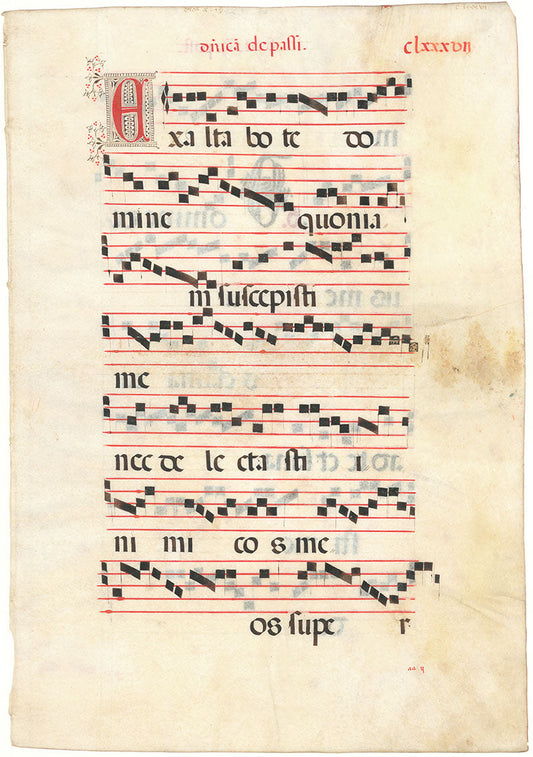 dnica de passi. clxxxvii
Exa lta bo te do
mine quonia
m suscepisti
me
nec de le cta sti i
ni mi co s me
os supe r